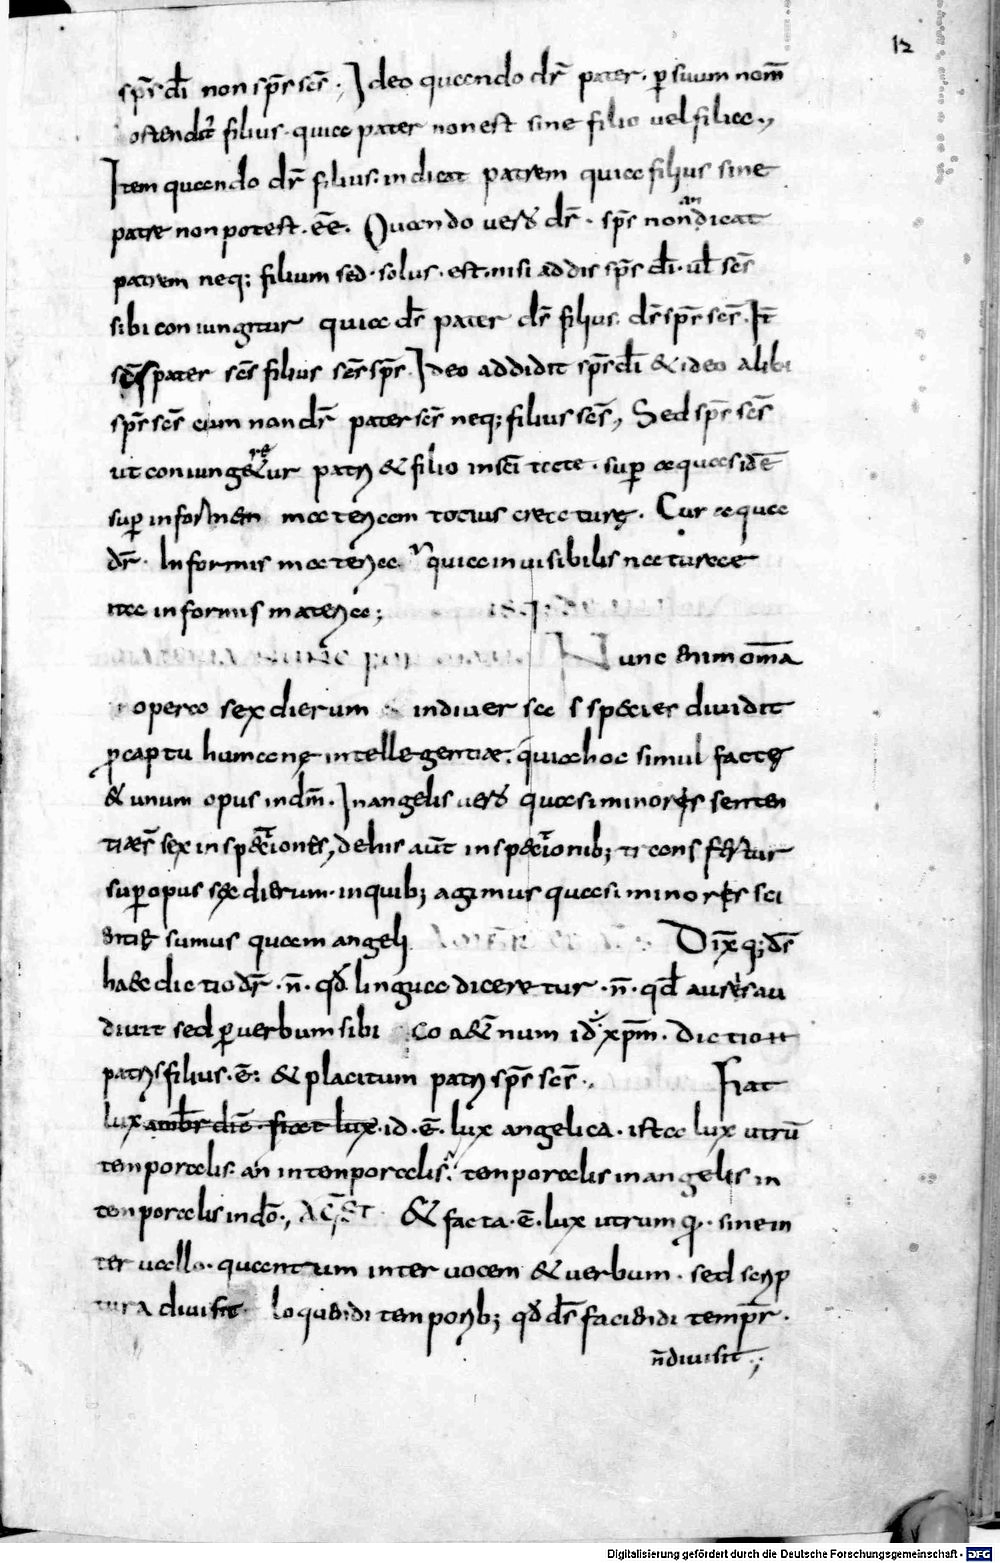 12
sp̄s dī non sp̄s sc̄s ; Ideo quando dr̄ pater · ꝑ suum nom̄
ostendit᷑ filius · quia pater non est sine filio vel filia .,
Item quando dr̄ filius · indicat patrem quia filius sine
patre non potest · eē · Quando vero dr̄ · sp̄s non indicat
patrem neq; filium sed · solus · est · nisi addis sp̄s dī · ul̄ sc̄s
sibi coniungitur quia dr̄ pater dr̄ filius · dr̄ sp̄s sc̄s · It̄
sc̄s pater sc̄s filius sc̄s sp̄s · Ideo addidit sp̄s dī & ideo alibi
sp̄s sc̄s cum non dr̄ pater sc̄s neq; filius sc̄s , Sed sp̄s sc̄s
ut coniung&ur patri & filio in sc̄itate · suꝑ aquas id ē
suꝑ informem materiam totius creaturę · Cur aqua
dr̄ · Informis materia quia invisibilis natura
ita informis materia ;
Nunc enim om̄a
opera sex dierum & in diversas species dividit
ꝓ captu humanę intellegentiæ · quia hoc simul factę
& unum opus in dm̄ · In angelis vero quasi minores senten
tiæ sex inspectiones, de his aūt inspectionib; ti consfertur
suꝑ opus sex dierum · in quib; agimus quasi minores sci
entię sumus quam angeli Dix̄ q; ds̄
haec dictio dr̄ · n̄ · qd̄ lingua diceretur · n̄ · qd̄ aures au
divit sed ꝑ verbum sibi coa&ernum id ÷ xp̄m · Dictio n̄
patris filius · ē : & placitum patris sp̄s sc̄s ., Fiat
lux · id · ē · lux angelica · ista lux utrū
temporalis · an intemporalis · temporalis in angelis in
temporalis in dō ., & facta · ē · lux utrum · sine in
tervallo · quantum inter vocem & verbum · sed scrip
tura divisit loquendi temporib; qd̄ ds̄ faciendi tempr̄ ·
n̄ divisit .,
Digitalisierung gefördert durch die Deutsche Forschungsgemeinschaft - DFG